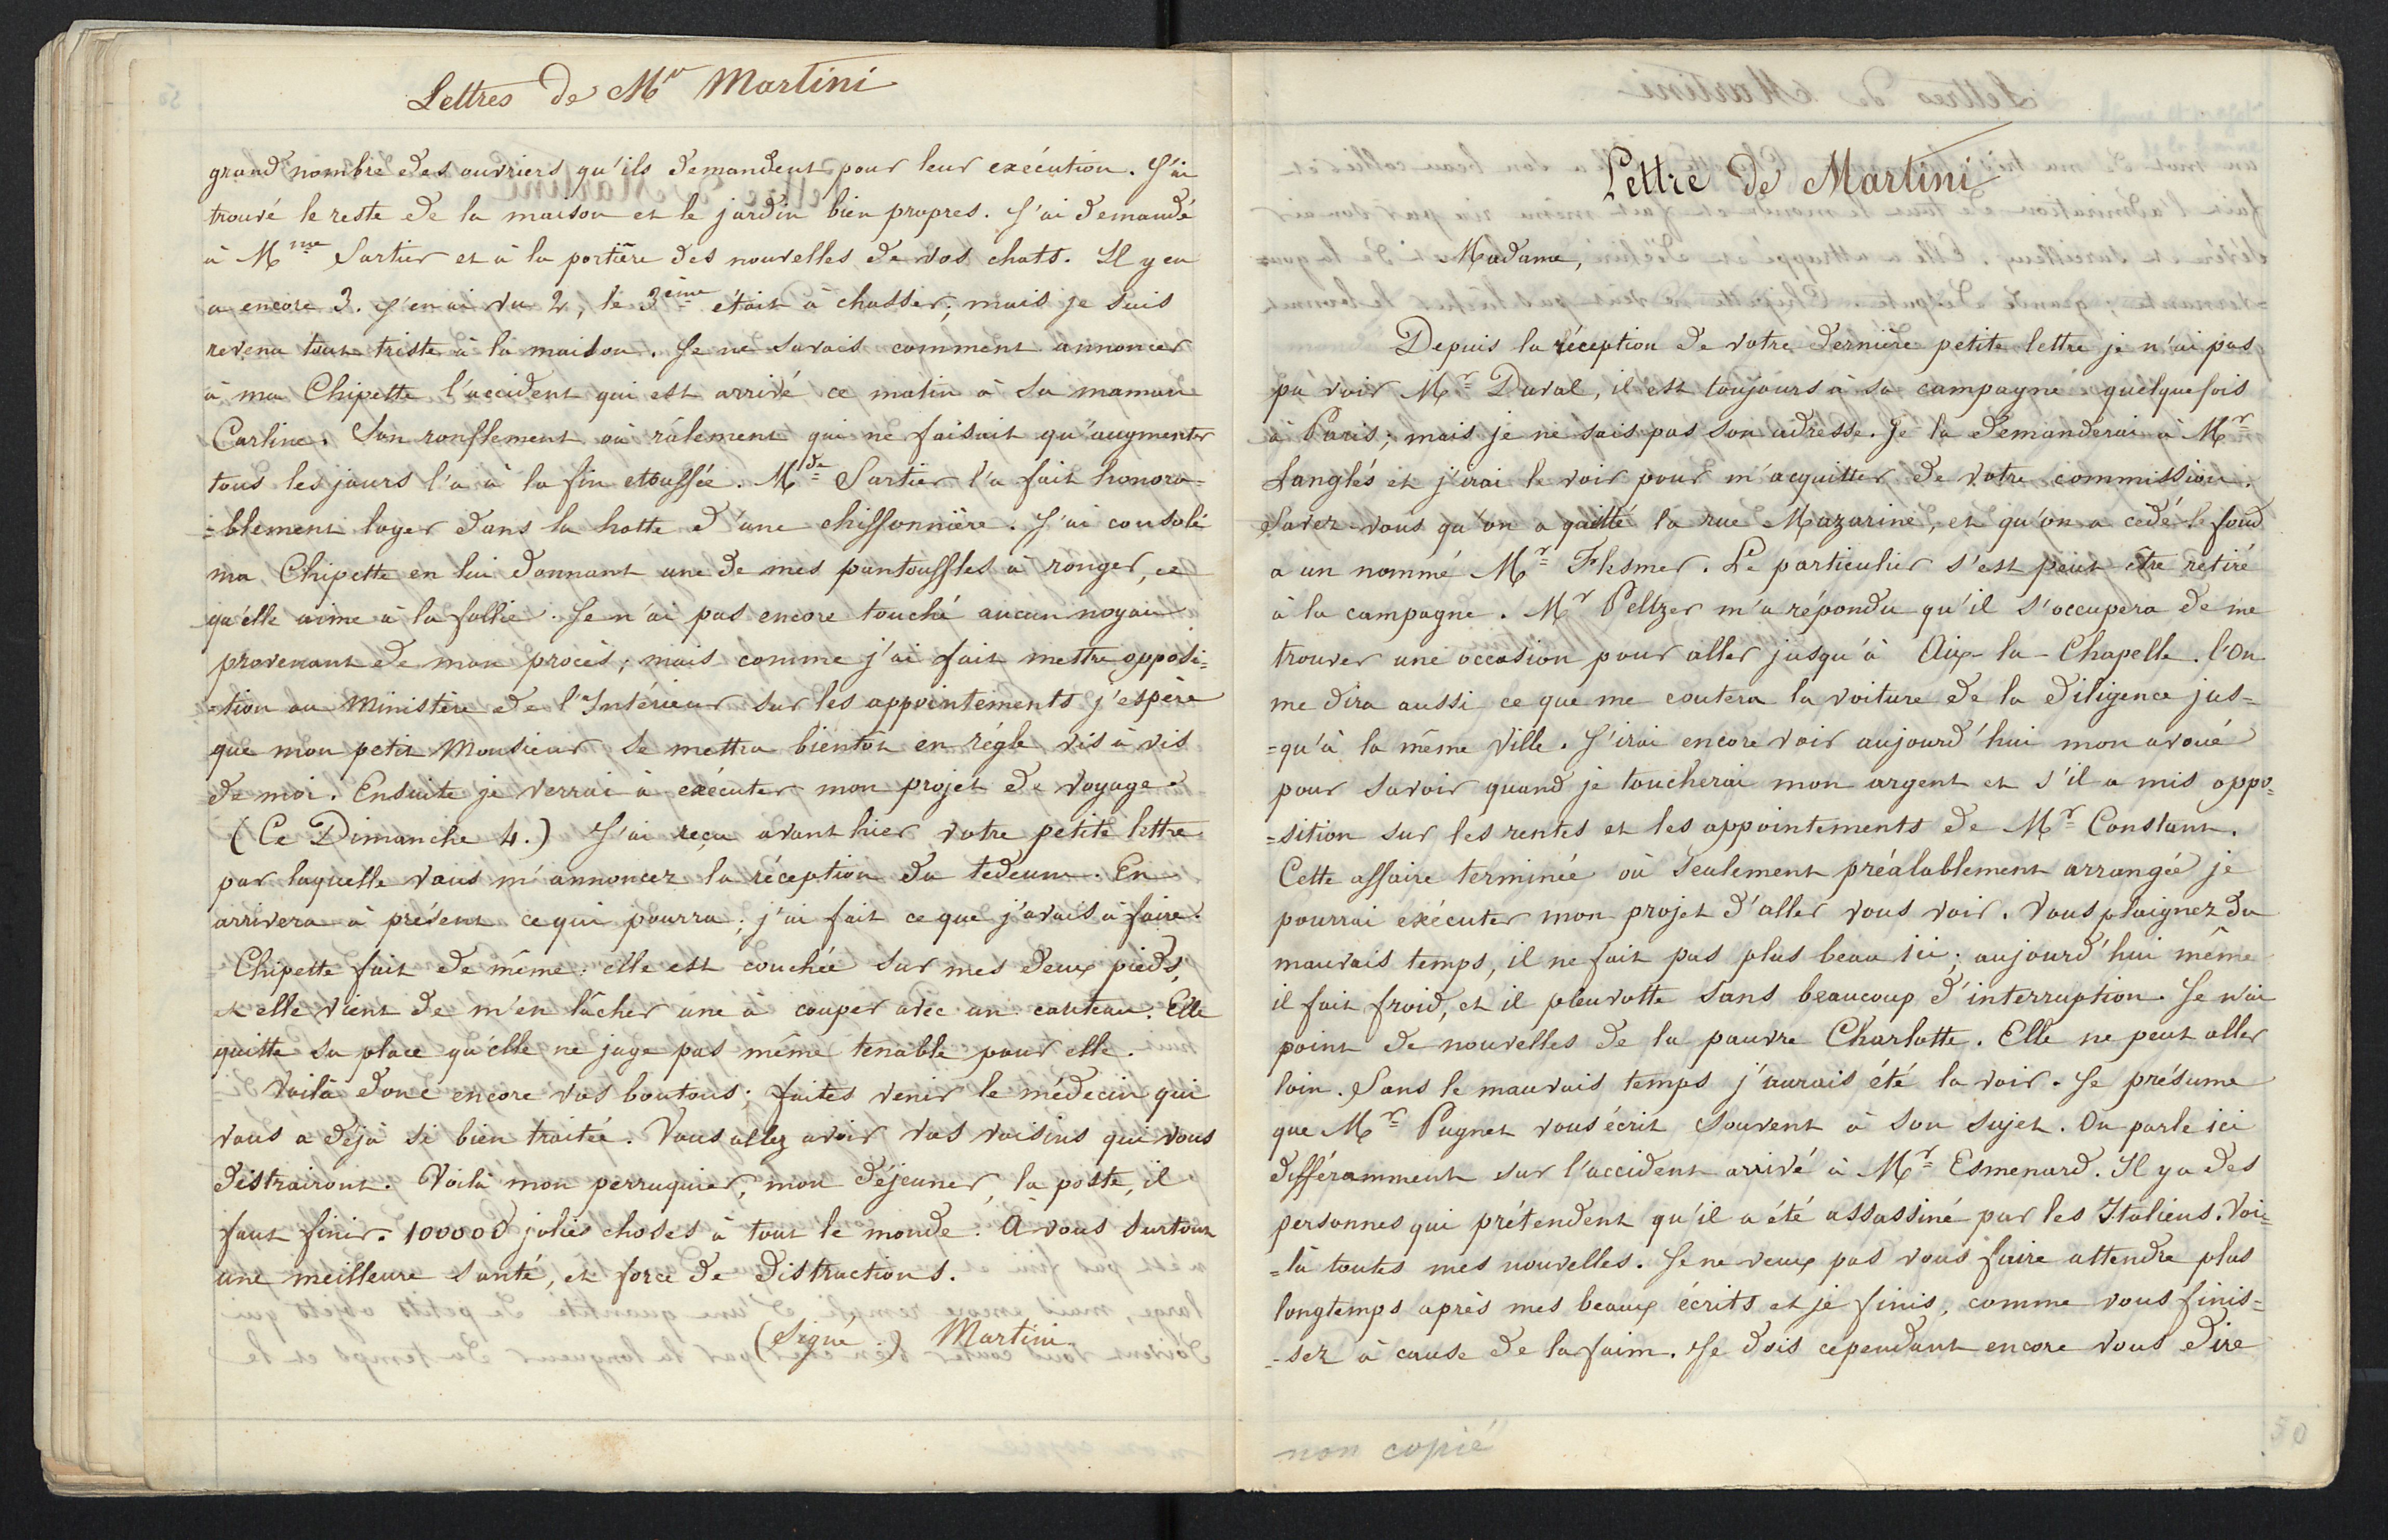 Lettres de Mr Martini
grand nombre des ouvriers qu'ils demandent pour leur exécution. J'ai
trouvé le reste de la maison et le jardin bien propres. J'ai demandé
à Mme Sartier et à la portière des nouvelles de vos chats. Il y en
a encore 3. J'en ai vu 2, le 3ème était à chasser; mais je suis
revenu tout triste à la maison. Je ne savais comment annoncer
à ma Chipette l'accident qui est arrivé ce matin à sa maman
Carline. Son ronflement où râlement qui ne faisait qu'augmenter
tous les jours l'a à la fin etouffée. Mde Sartier l'a fait honora=
=blement loger dans la hotte d'une chiffonnière. J'ai consolé
ma Chipette en lui donnant une de mes pantouffles à ronger, ce
qu'elle aime à la follie. Je n'ai pas encore touché aucun noyau
provenant de mon procès; mais comme j'ai fait mettre opposi=
=tion au Ministère de l'Intérieur sur les appointements j'espère
que mon petit Monsieur se mettra bientôt en régle vis à vis
de moi. Ensuite je verrai à exécuter mon projet de voyage.
(Ce Dimanche 4.) J'ai reçu avant hier votre petite lettre
par laquelle vous m'annoncez la réception du tedeum. En
arrivera à présent ce qui pourra; j'ai fait ce que j'avais à faire.
Chipette fait de même: elle est couchée sur mes deux pieds,
et elle vient de m'en lâcher une à couper avec un couteau. Elle
quitte sa place qu'elle ne juge pas même tenable pour elle.
Voilà donc encore vos boutons; faites venir le médecin qui
vous a déjà si bien traitée. Vous allez avoir vos voisins qui vous
distrairont. Voilà mon perruquier, mon déjeuner, la poste, il
faut finir. 100000 jolies choses à tout le monde. A vous surtout
une meilleure santé, et force de distractions.
(Signé) Martini
Lettre de Martini
Madame,
Depuis la réception de votre dernière petite lettre je n'ai pas
pu voir Mr Duval, il est toujours à sa campagne quelquefois
à Paris; mais je ne sais pas son adresse. Je la demanderai à Mr
Langlés et j'irai le voir pour m'acquitter de votre commission.
Savez-vous qu'on a quitté la rue Mazarine, et qu'on a cedé le fond
a un nommé Mr Flesmer. Le particulier s'est peut-être retiré
à la campagne. Mr Peltzer m'a répondu qu'il s'occupera de me
trouver une occasion pour aller jusqu'à Aix-la-Chapelle. l'On
me dira aussi ce que me coutera la voiture de la diligence jus=
=qu'à la même ville. J'irai encore voir aujourd'hui mon avoué
pour savoir quand je toucherai mon argent et s'il a mis oppo=
=sition sur les rentes et les appointements de Mr Constant.
Cette affaire terminée où seulement préalablement arrangée je
pourrai exécuter mon projet d'aller vous voir. Vous plaignez du
mauvais temps, il ne fait pas plus beau ici; aujourd'hui même
il fait froid, et il pleuvotte sans beaucoup d'interruption. Je n'ai
point de nouvelles de la pauvre Charlotte. Elle ne peut aller
loin. Sans le mauvais temps j'aurais été la voir. Je présume
que Mr Pugnet vous écrit souvent à son sujet. On parle ici
différamment sur l'accident arrivé à Mr Esmenard. Il y a des
personnes qui prétendent qu'il a été assassiné par les Italiens. Voi=
=là toutes mes nouvelles. Je ne veux pas vous faire attendre plus
longtemps après mes beaux écrits et je finis, comme vous finis=
=sez à cause de la faim. Je dois cependant encore vous dire
non copié
50